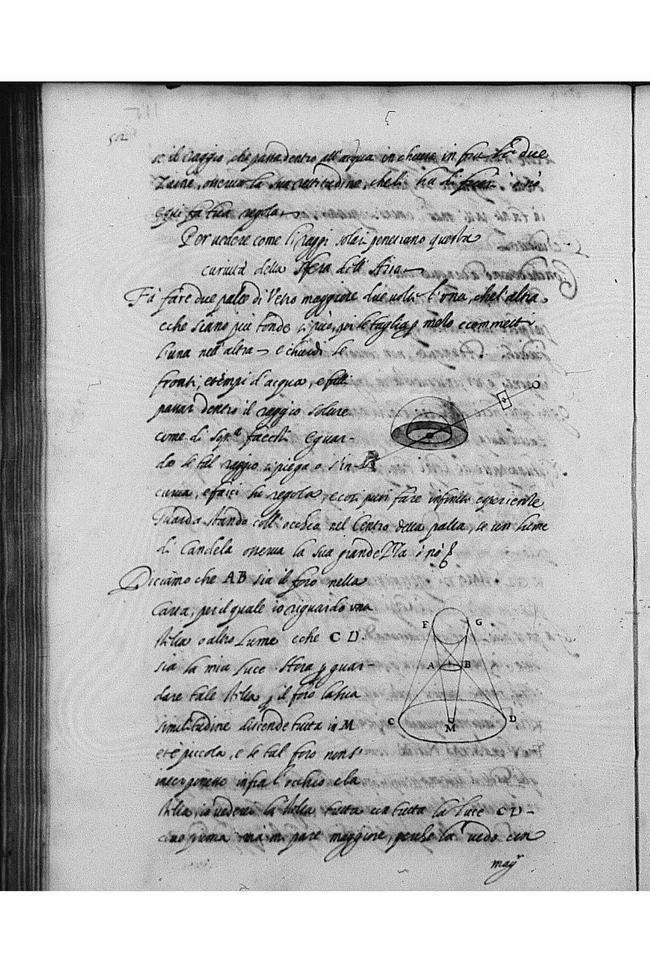 se il raggio, che passa dentro all'acqua in chiusa in fra due
Zaine, osserva la sua rettitudine, che li ha di fuori i nò
e qui fa tua regola
Per vedere come li raggi solari penetrano questa
curvità della sfera dell'Aria
Fà fare due palle di Vetro maggiore due volte l'una, che l'altra
e che siano più tonde si può, poi le taglia p melo e commetti
l'una nell'altra e chiudi le
fronti, et empi d'acqua, e fatti
passar dentro il raggio solare
come di sopra facesti e guar-
da se tal raggio si piega o s'in-
curva, e farai tua regola, e così puoi fare infinite esperientie
Guarda stando coll'occhio nel Centro della palla, se un lume
di Candela osserva la sua grandezza i nò
Diciamo che AB sia il foro nella
Carta, per il quale io riguardo una
stella o altro lume e che C D.
sia la mia luce stora p guar-
dare tale stella p il foro la sua
similitudine discende tutta in M
et è piccola, e se tal foro non s'
interponesse infra l'occhio e la
stella, io vederei la stella tutta con tutta la luce CD-
come prima mà mi pare maggiore, perche la vedo con
magr
F G
A B
C M D